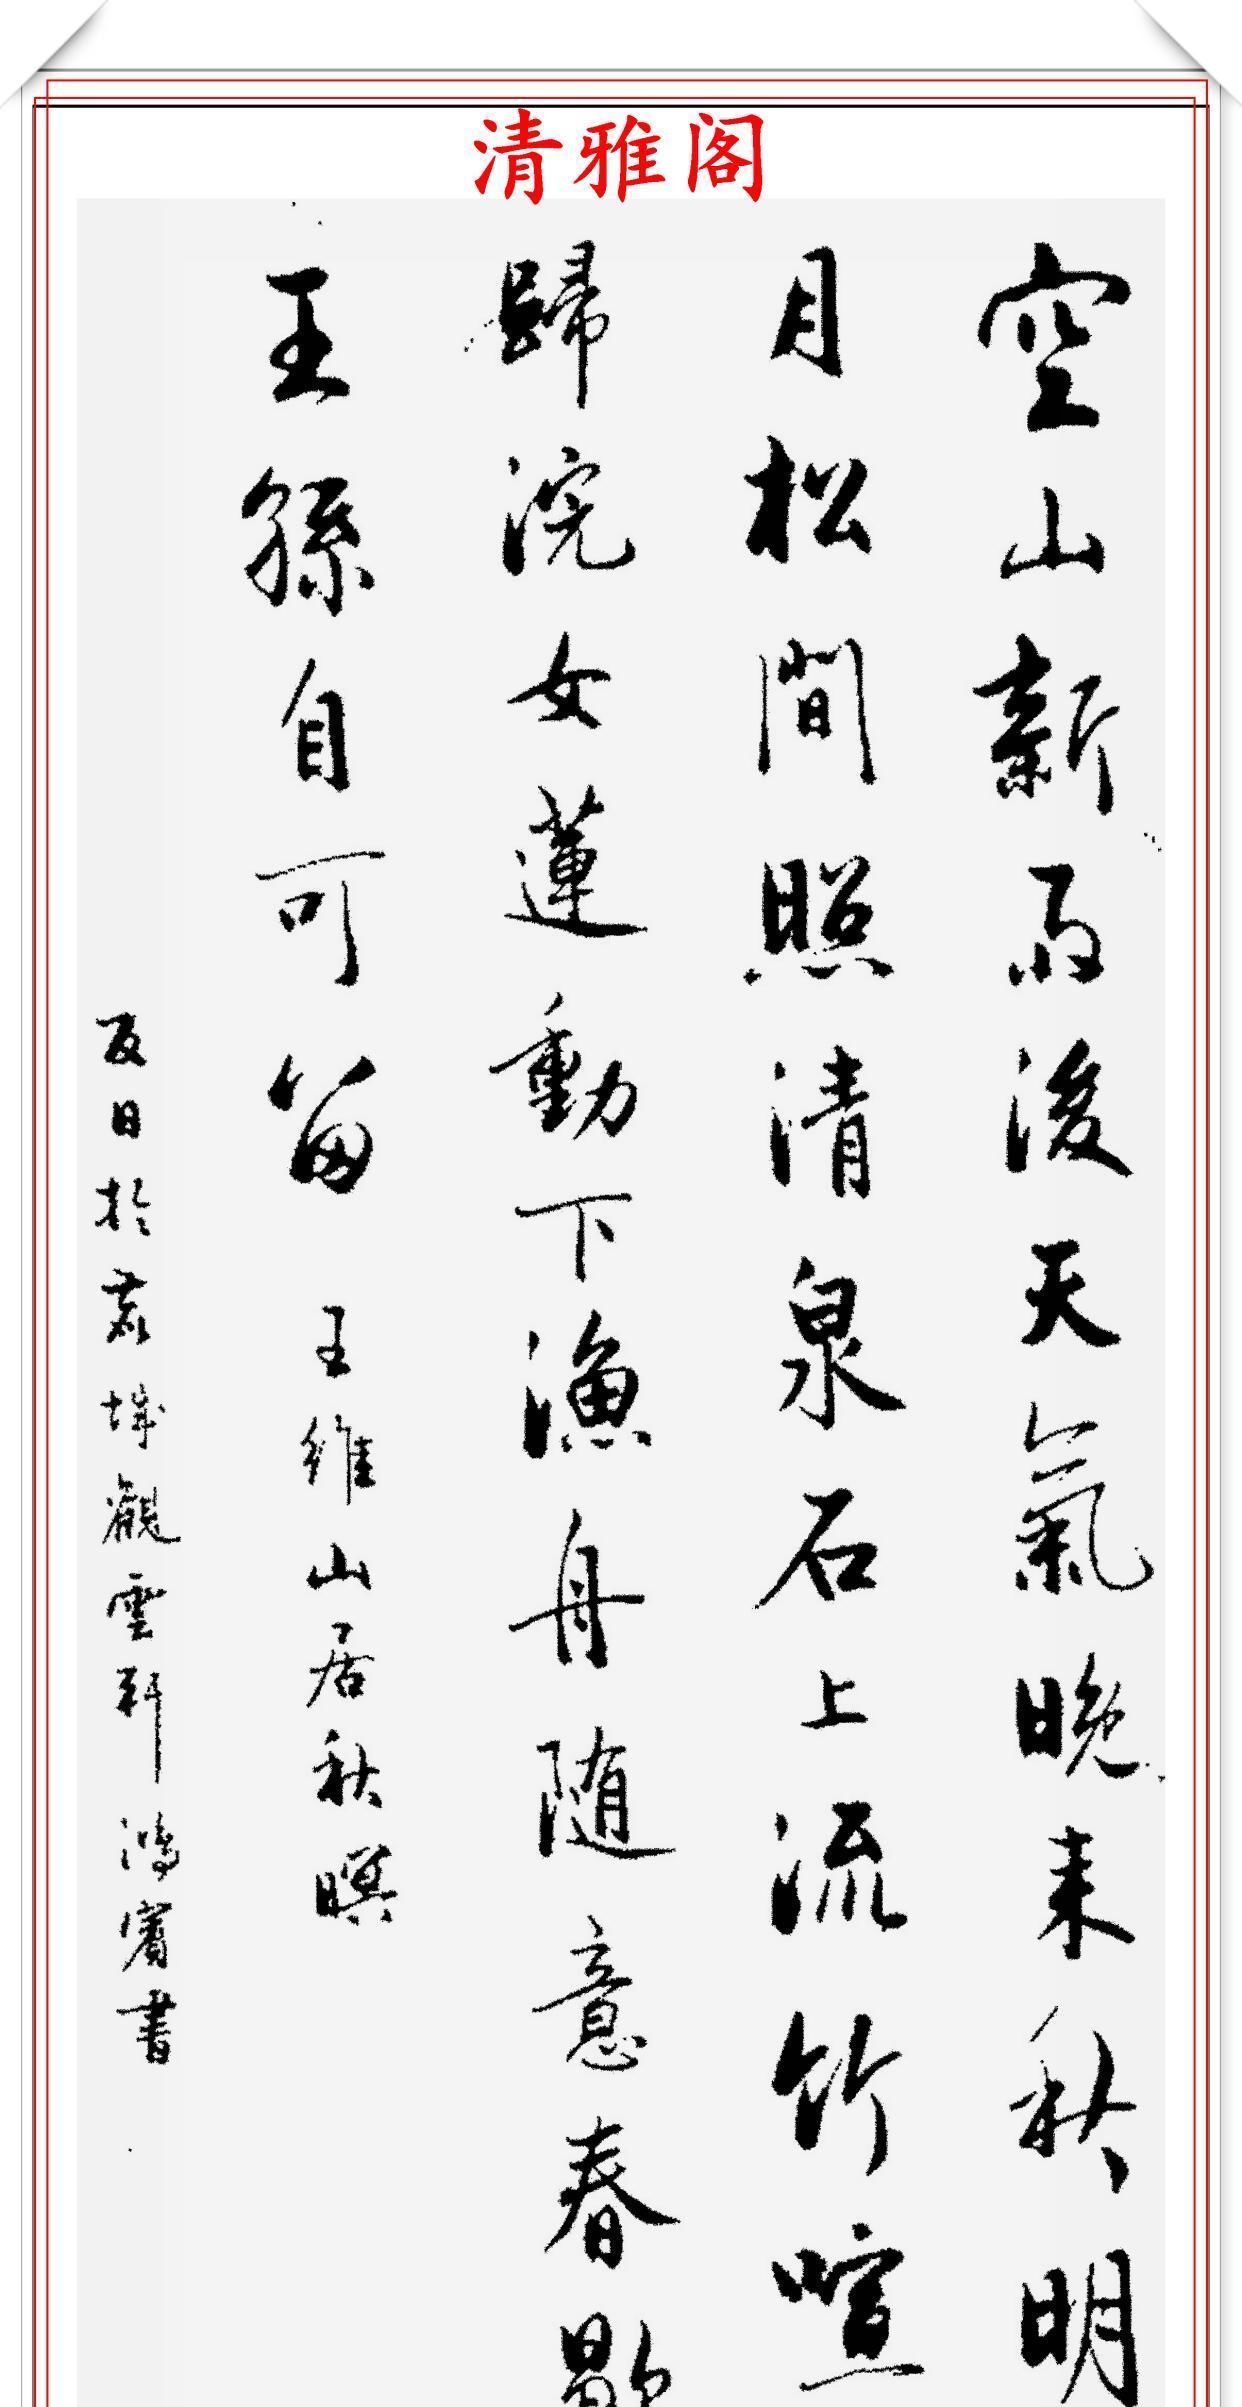 清雅阁
空山新雨後天氣晚来秋明
月松間照清泉石上流竹喧
歸浣女蓮動下漁舟随意春歇
王孫自可留
王維山居秋暝
夏日於蓉城觀雲軒鴻賓書